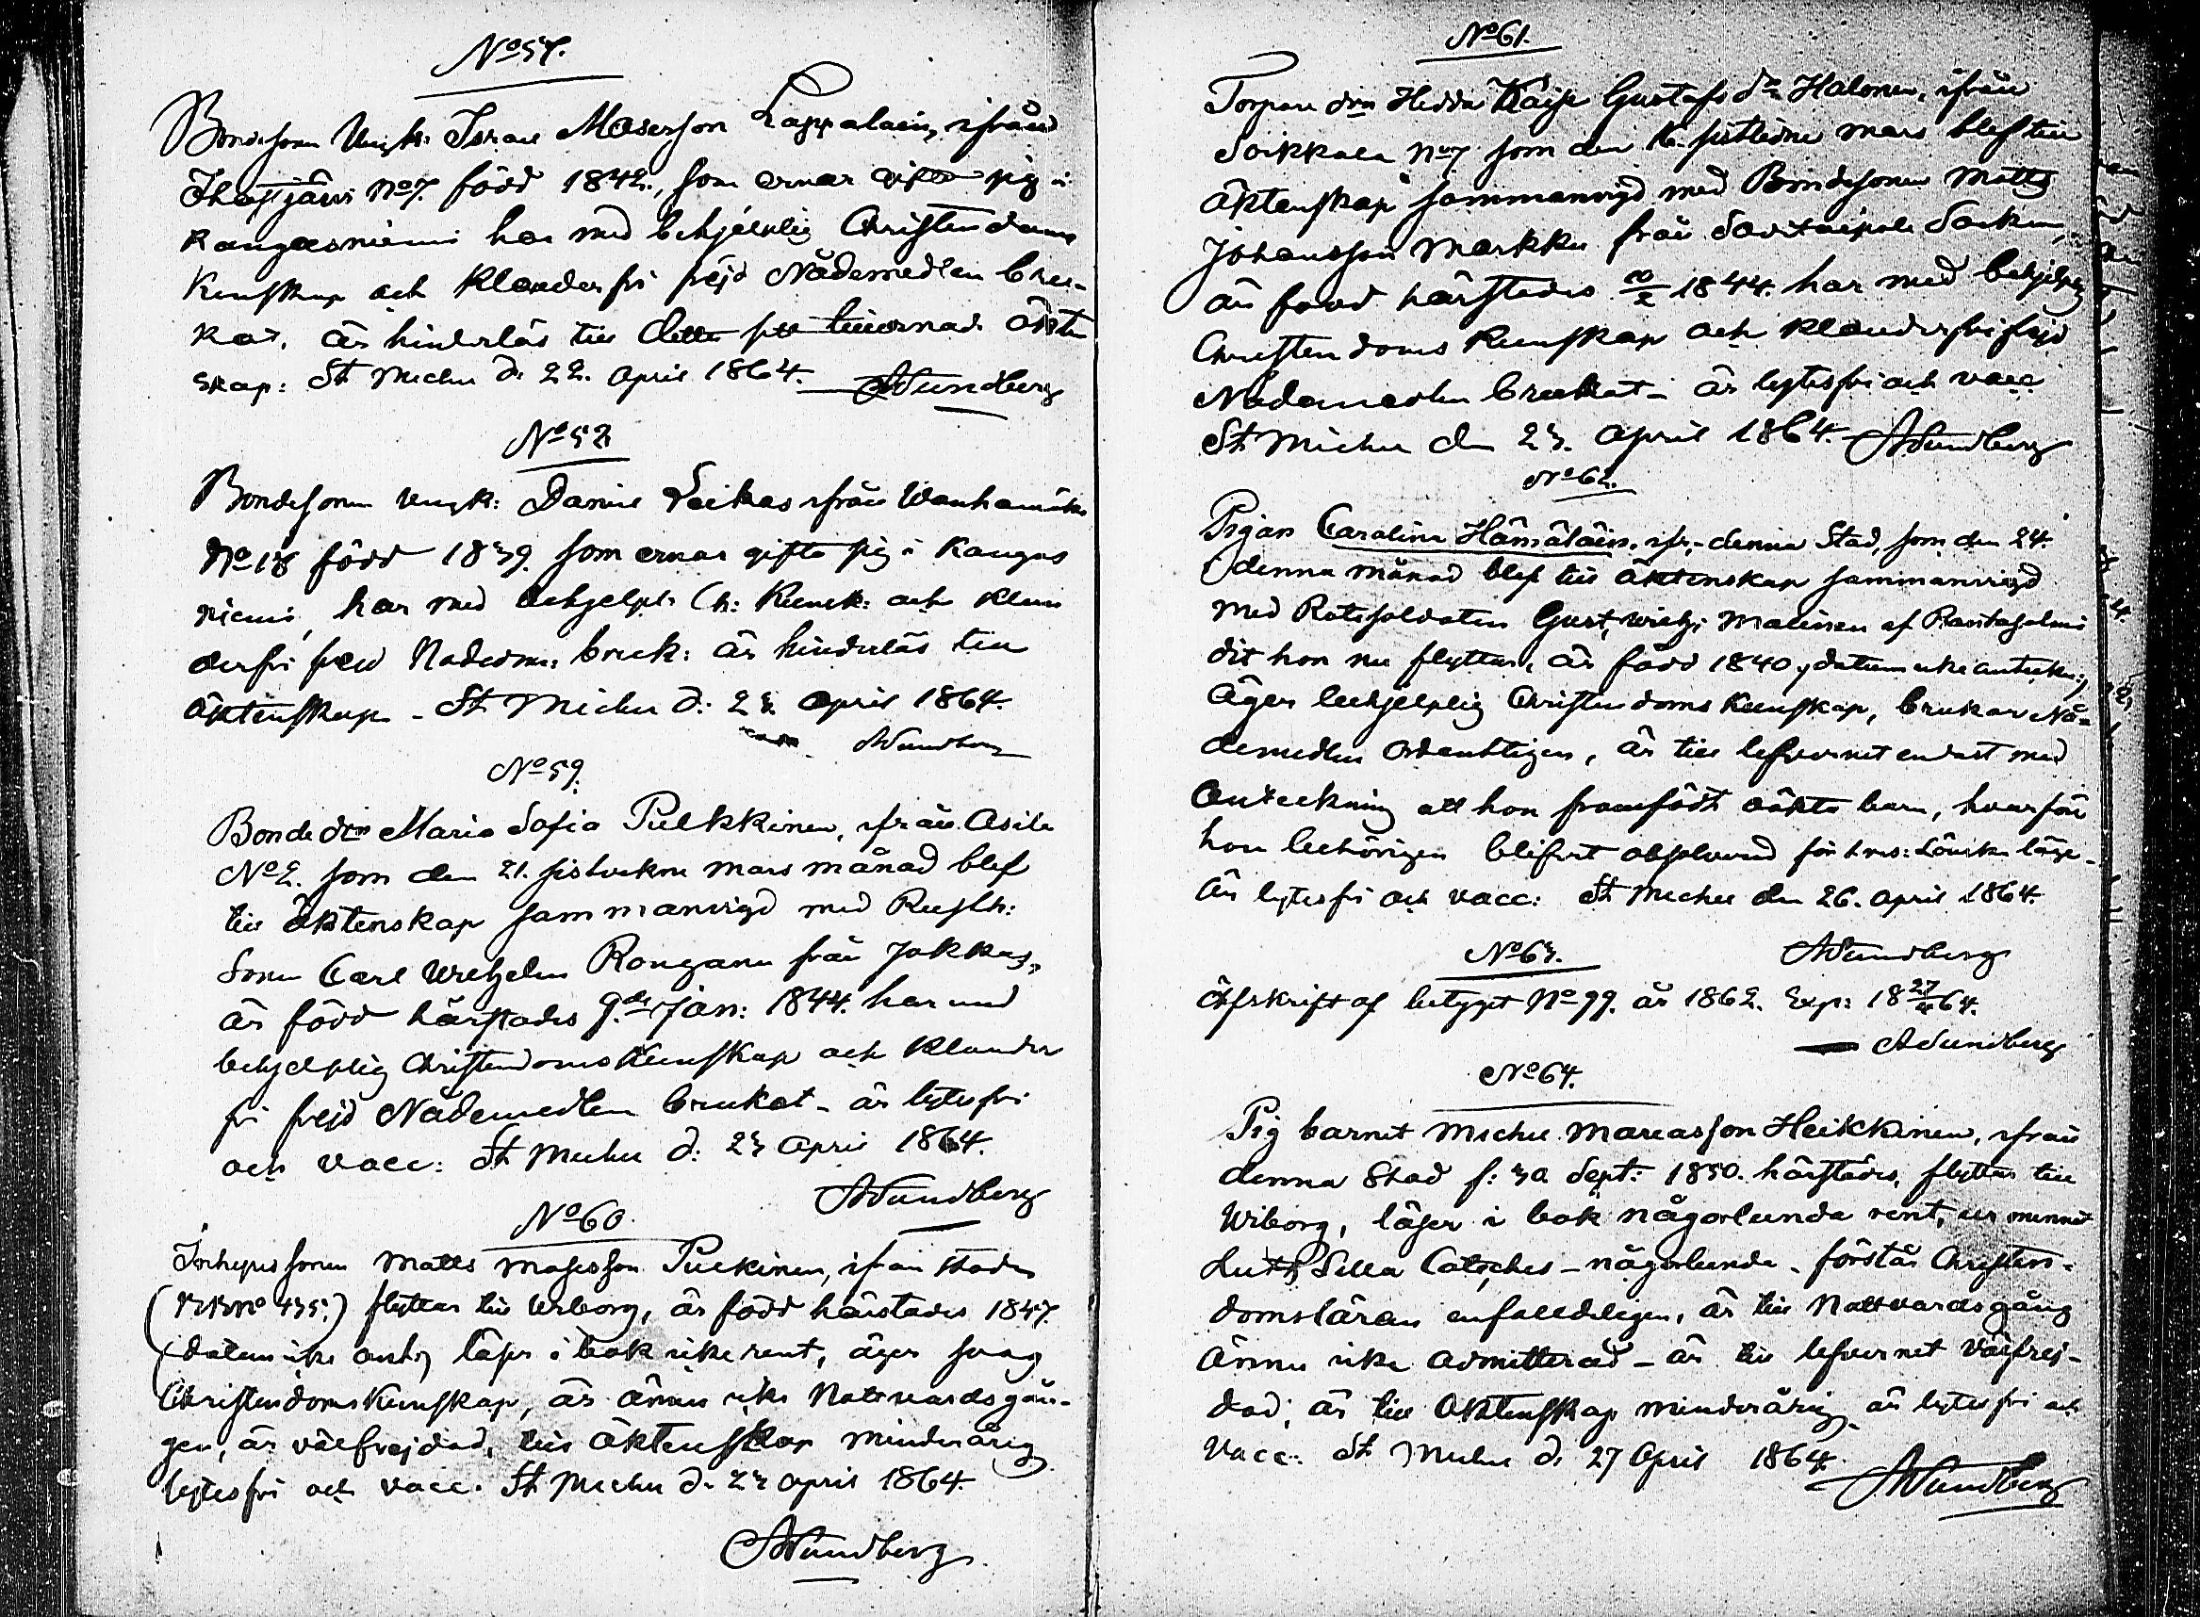 No 57.
Bondesonen Ungk: Israel Mosesson Lappalain, ifrån
Ihastjärvi No 7. född 1842., som ernar gifta sig i
Kangasniemi har med behjelplig Christendoms
Kunskap och klanderfri frejd Nådemedlen bru-
kat, är hinderlös till detta sitt tillernade äkten
skap: St Michel d. 22. April 1864. ASundberg
No 58
Bondesonen Ungk: Daniel Leikas ifrån Wanhamäki
No 18 född 1839. som ernar gifta sig i Kangas
niemi, har med behjelpl: Ch: Kunsk: och klan
derfri frejd Nådem: bruk: är hinderlös till
äktenskap - St Michel d: 23. April 1864.
ASundberg
No 59.
Bonde dtrn Maria Sofia Pulkkinen, ifrån Asila
No 2. som den 21. sistvekne Mars månad blef
till äktenskap sammanvigd med Rusth:
Sonen Carl Wilhelm Ronganen från Jokkas,
är född härstädes 9.de Jan: 1844. har med
behjelplig Christendoms Kunskap och klander
fri frejd Nådemedlen brukat - är lytesfri
och vacc: St Michel d: 23 April 1864.
ASundberg
No 60
Inhyses sonen Matts Mosesson Pulkinen, ifrån staden
(No 435.) flyttar till Wiborg, är född härstädes 1847.
(datum icke ant:) läser i bok icke rent, äger svag
Christendoms Kunskap, är ännu icke Nattvardsgån-
gen, är välfrejdad, till äktenskap minderårig
lytesfri och vacc. St Michel d. 23 April 1864.
ASundberg
No 61.
Torpare drn Hedda Kaisa Gustafs dr Halonen, ifrån
Soikkala No 7 som den 16. sistledne mars blef till
äktenskap sammanvigd med Bondesonen Matts
Johansson Markku från Savitaipale Socken,
är född härstädes 20/2 1844. har med behjelplig
Christendoms Kunskap och klanderfri frejd
Nådemedlen brukat - är lytesfri och vacc
St Michel den 23. April 1864. ASundberg
No 62.
Pigan Carolina Hämäläin, ifr. denna Stad, som den 24.
denna månad blef till äktenskap sammanvigd
med Rotesoldaten Gust, Wilh: Malinen af Rantasalmi
dit hon nu flyttar, är född 1840, datum icke anteckn:,
äger behjelplig Christendoms Kunskap, brukar Nå-
demedlen ordentligen, är till lefvernet endast med
anteckning att hon framfödt oäkta barn, hvarföre
hon behörigen blifvit absolverad för
är lytesfri och vacc: St Michel den 26. April 1864.
ASundberg
No 63.
Afskrift af betyget No 99. år 1862. Exp: 18 27/4 64.
ASundberg
No 64.
Pig barnet Michel Mariasson Heikkinen, ifrån
denna Stad f: 30 Sept: 1850. härstädes, flyttar till
Wiborg, läser i bok någorlunda rent, ur minnet
Luth Lilla Cateches - någorlunda - förstår Christen-
domsläran enfaldeligen, är till Nattvardsgång
ännu icke admitterad - är till lefvernet välfrej-
dad, är till äktenskap minderårig är lytesfri och
vacc: St Michel d. 27 April 1864.
ASundberg